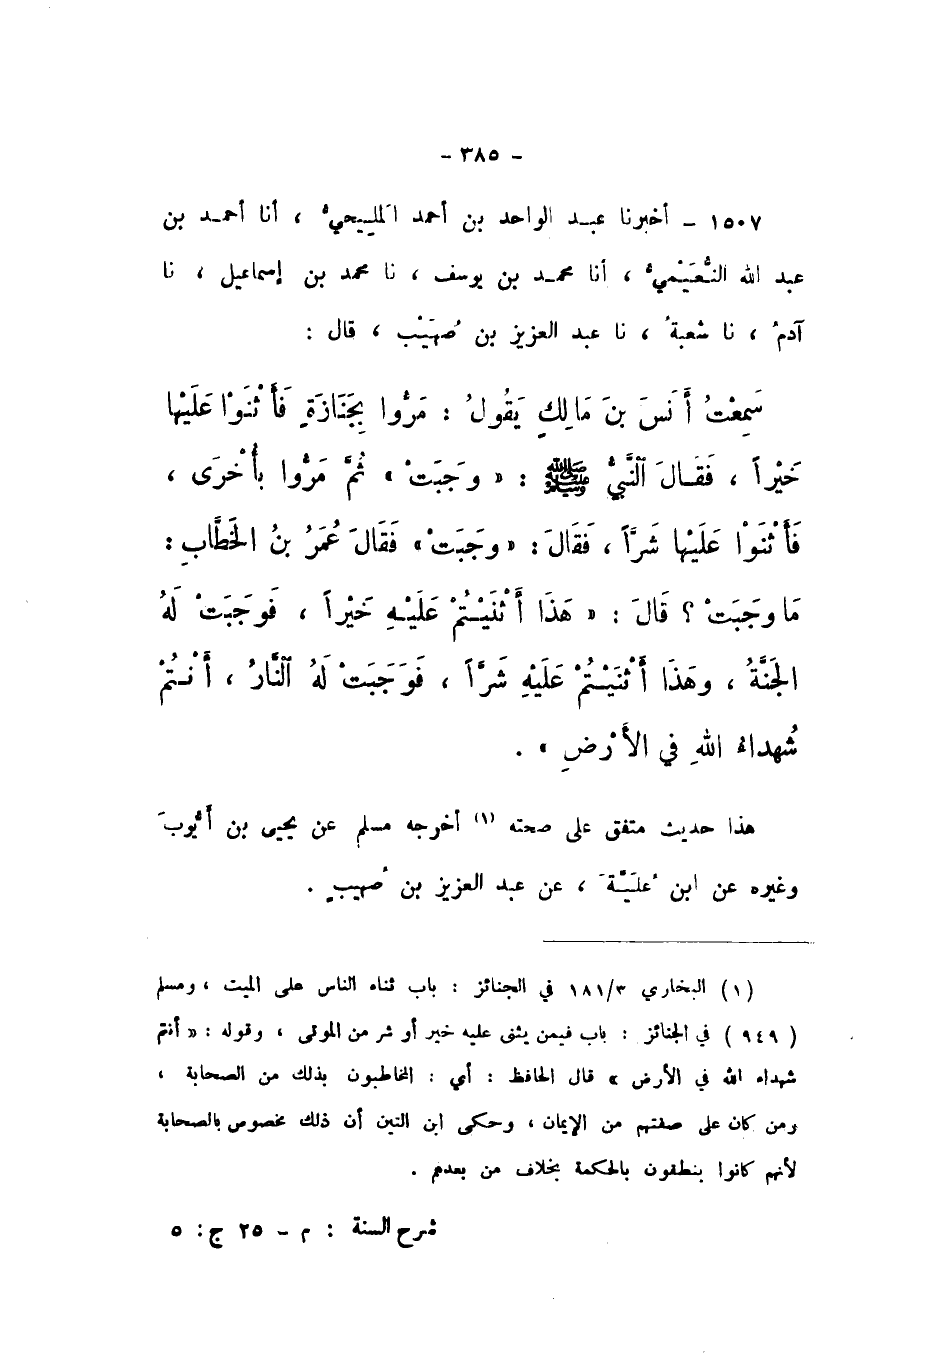 - ٣٨٥ -
١٥٠٧ - أخبرنا عبد الواحد بن أحمد المَلِيحيُّ ، أنا أحمد بن
عبد الله النُّعَيْميُّ ، أنا محمد بن يوسف ، نا محمد بن إسماعيل ، نا
آدمُ ، نا شعبةُ ، نا عبد العزيز بن صُهَيْب ، قال :
سَمِعْتُ أَنَسَ بنَ مَالِكٍ يَقُولُ : مَرُّوا بِجَنَازَةٍ فَأَثْنَوْا عَلَيْها
خَيْراً ، فَقَالَ ٱلنَّبِيُّ ﷺ : « وَجَبَتْ » ثُمَّ مَرُّوا بأُخْرَى ،
فَأَثْنَوْا عَلَيْها شَرَّاً ، فَقَالَ : « وَجَبَتْ » فَقَالَ عُمَرُ بنُ الخَطَّابِ :
مَا وجَبَتْ ؟ قَالَ : « هَذَا أَثْنَيْتُمْ عَلَيْهِ خَيْراً ، فَوجَبَتْ لَهُ
الجَنَّةُ ، وهَذَا أَثْنَيْتُمْ عَلَيْهِ شَرَّاً ، فَوَجَبَتْ لَهُ ٱلنَّارُ ، أَنْتُمْ
شُهداءُ اللهِ في الأَرْضِ » .
هذا حديث متفق على صحته (١) أخرجه مسلم عن يحيى بن أيُّوبَ
وغيره عن ابن عُلَيَّةَ ، عن عبد العزيز بن صُهيبٍ .
(١) البخاري ١٨١/٣ في الجنائز : باب ثناء الناس على الميت ، ومسلم
( ٩٤٩ ) في الجنائز : باب فيمن يثنى عليه خير أو شر من الموتى ، وقوله : « أنتم
شهداء الله في الأرض » قال الحافظ : أي : المخاطبون بذلك من الصحابة ،
ومن كان على صفتهم من الإيمان ، وحكى ابن التين أن ذلك مخصوص بالصحابة
لأنهم كانوا ينطقون بالحكمة بخلاف من بعدهم .
شرح السنة : م - ٢٥ ج : ٥